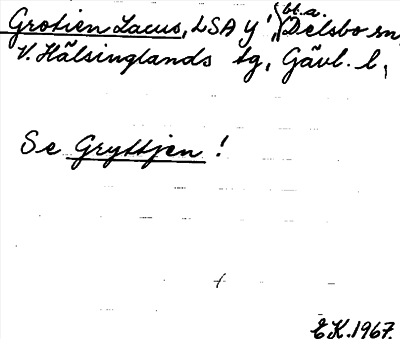 Grotien Lacus, LSA Y, bl.a. Delsbo sn,
V. Hälsinglands tg, Gävl. l,
Se Gryttjen!
E.K. 1967.